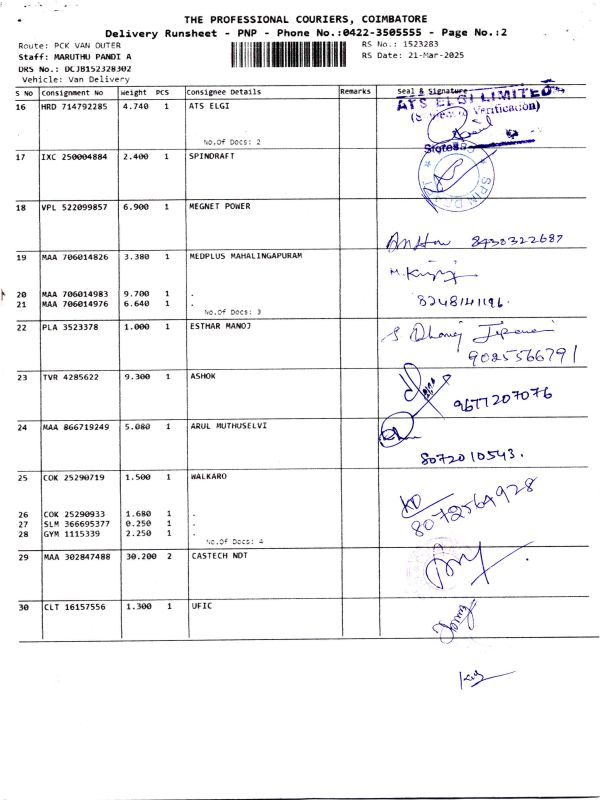 THE PROFESSIONAL COURIERS, COIMBATORE
Delivery Runsheet - PNP - Phone No.:0422-3505555 - Page No.:2
Route: PCK VAN OUTER RS No.: 1523283
Staff: MARUTHU PANDI A RS Date: 21-Mar-2025
DRS No.: DCJB152328302
Vehicle: Van Delivery
S No Consignment No Weight PCS Consignee Details Remarks Seal & Signature
16 HRD 714792285 4.740 1 ATS ELGI
ATS ELGI LIMITED
No.Of Docs: 2
17 IXC 250004884 2.400 1 SPINDRAFT
18 VPL 522099857 6.900 1 MEGNET POWER
8430322687
19 MAA 706014826 3.380 1 MEDPLUS MAHALINGAPURAM
20 MAA 706014983 9.700 1 .
21 MAA 706014976 6.640 1 .
8248141196.
No.Of Docs: 3
22 PLA 3523378 1.000 1 ESTHAR MANOJ
9025566791
23 TVR 4285622 9.300 1 ASHOK
9677207076
24 MAA 866719249 5.080 1 ARUL MUTHUSELVI
8072010543.
25 COK 25290719 1.500 1 WALKARO
8072564928
26 COK 25290933 1.680 1 .
27 SLM 366695377 0.250 1 .
28 GYM 1115339 2.250 1 .
No.Of Docs: 4
29 MAA 302847488 30.200 2 CASTECH NDT
30 CLT 16157556 1.300 1 UFIC